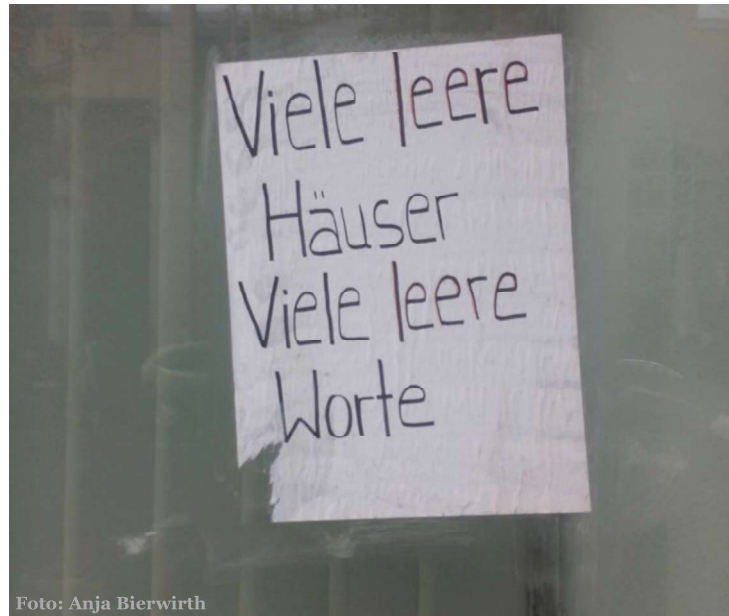 Viele leere
Häuser
Viele leere
Worte
Foto: Anja Bierwirth